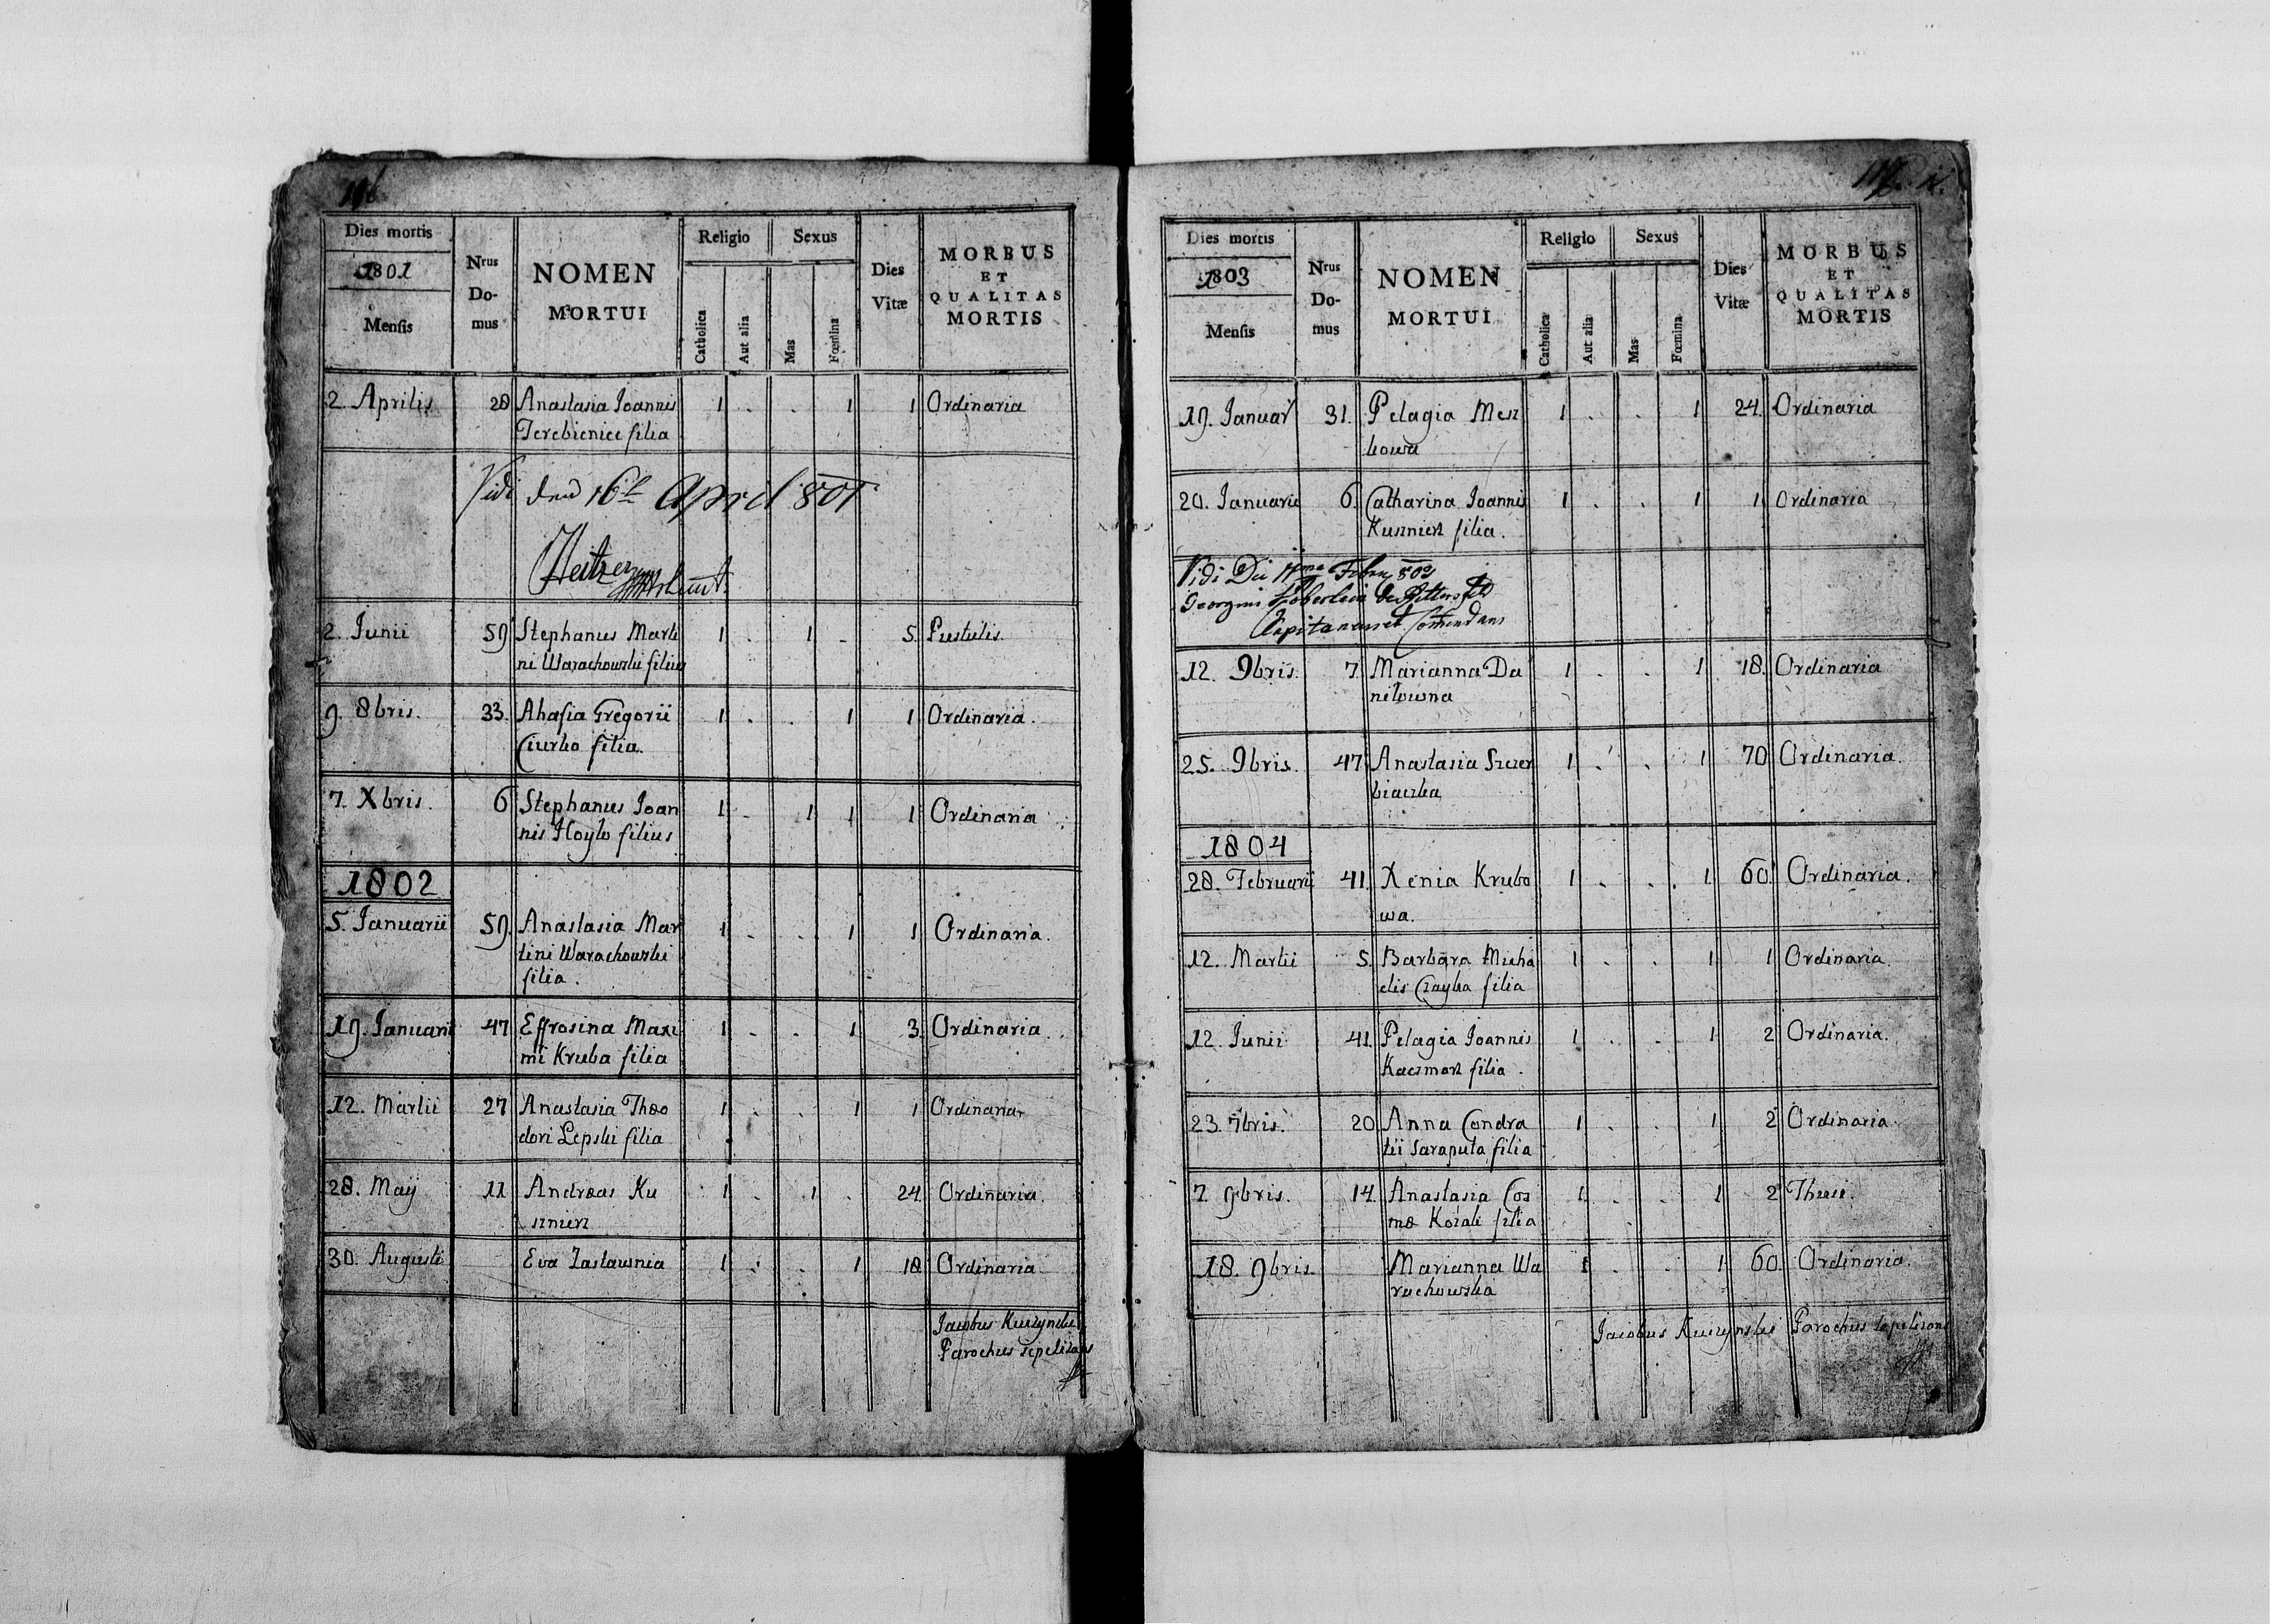 Dies mortis
1801
Mensis
Nrus Do- mus
NOMEN
MORTUI
Religio
Catholica
Aut alia
Sexus
Mas
Fœmina
Dies
Vitæ
MORBUS
ET
QUALITAS
MORTIS
2. Aprilis 28 Anastasia Joannis 1 . . 1 1 Ordinaria
Terebieniec filia
Vidi den 16t April 801
2. Junii 59 Stephanus Marti 1 . 1 - 5. Pustulis
ni Warachowski filius
9. 8bris. 33. Ahafia Gregorii 1 . . 1 1 Ordinaria.
Ciurko filia.
7. Xbris. 6 Stephanus Joan 1 - 1 1 1 Ordinaria
nis Hoyło filius
1802
5. Januarii 59. Anastasia Mar 1 . . 1 1 Ordinaria.
tini Warachowski
filia.
19. Januarii 47 Effrosina Maxi 1 - . 1 3. Ordinaria
mi Kruba filia
12. Martii 27 Anastasia Theo 1 . . 1 1 Ordinaria
dori Lepski filia
28. Maij 11 Andreas Ku 1 . 1 . 24. Ordinaria.
sznierz
30. Augusti Eva Zasławnia 1 . . 1 18. Ordinaria
Jacobus Kuczynski
Parochus sepelizans
Dies mortis
1803
Mensis
Nrus Do- mus
NOMEN
MORTUI
Religio
Catholica
Aut alia
Sexus
Mas
Fœmina
Dies
Vitæ
MORBUS
ET
QUALITAS
MORTIS
19. Januar 31. Pelagia Mesz 1 . . 1 24. Ordinaria
kowa
20. Januarii 6. Catharina Joannis 1 . . 1 1 Ordinaria
Kusznierz filia.
Vidi Die 17ma Febru 803
Capitaneus et
12. 9bris. 7. Marianna Da 1 . . 1 18. Ordinaria
niłowna
25. 9bris. 47 Anastasia Szczer 1 . . 1 70 Ordinaria.
biaczka
1804
28. Februarii 41. Xenia Krubo 1 . . 1 60. Ordinaria.
wa.
12. Martii 5. Barbara Micha 1 . . 1 1 Ordinaria.
elis Czayka filia
12. Junii 41. Pelagia Joannis 1 . . 1 2 Ordinaria.
Kaczmarz filia.
23. 7bris. 20 Anna Condra 1 . . 1 2 Ordinaria.
tii Saraputa filia
7. 9bris. 14. Anastasia Cos 1 . . 1 2 Thusi.
mæ Kozak filia
18. 9bris. Marianna Wa 1 . . 1 60. Ordinaria.
rachowska
Jacobus Kuczynski Parochus sepelizans